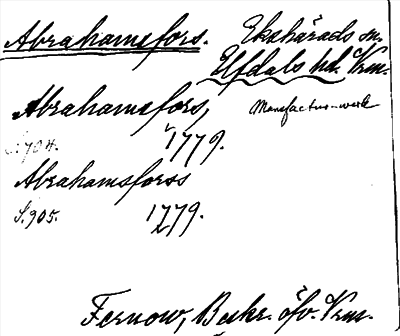 Abrahamsfors. Ekshärads sn.
Elfdals hd. Vrm.
Abrahamsfors, Manufactur-werk
S. 904. 1779.
Abrahamsforss
S. 905. 1779.
Fernow, Beskr. öfv. Vrm.